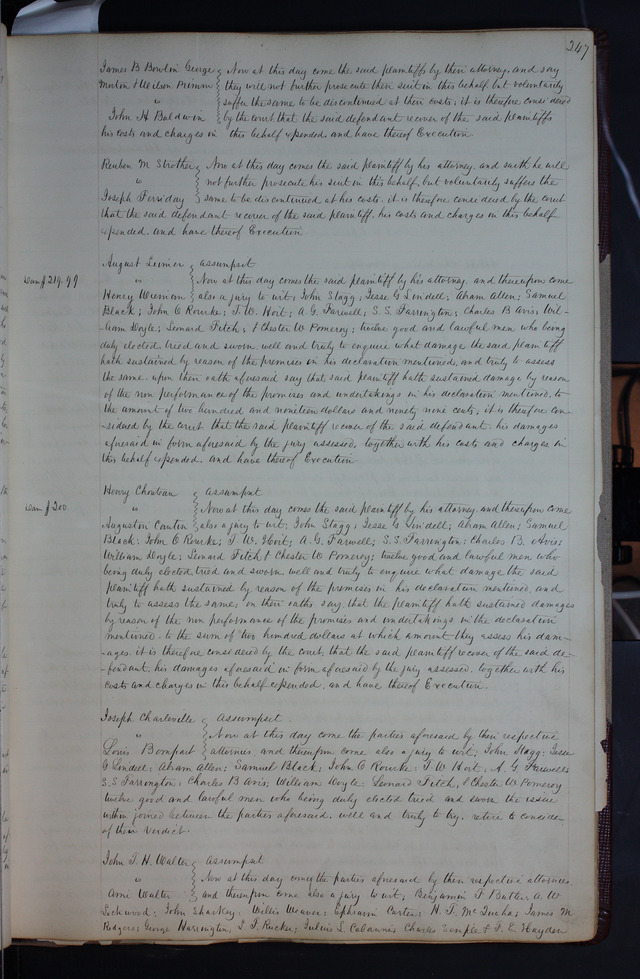 247
James B Bowlin George } Now at this day come the said plaintiffs by their attorney, and say
Morton & Wilson Primm } they will not further prosecute their suit in this behalf but voluntarily
" } suffer the same to be discontinued at their costs; it is therefore considered
John H Baldwin } by the court that the said defendant recover of the said plaintiffs
his costs and charges in this behalf expended, and have thereof Execution
Reuben M Strother } Now at this day comes the said plaintiff by his attorney, and saith he will
" } not further prosecute his suit in this behalf, but voluntarily suffers the
Joseph Ferriday } same to be discontinued at his costs; it is therefore considered by the court
that the said defendant recover of the said plaintiff, his costs and charges in this behalf
expended, and have thereof Execution
August } assumpsit
Dam $219.99 " } Now at this day comes the said plaintiff by his attorney, and thereupon come
Henry } also a jury to wit; John Stagg; Jesse G Lindell; Abram Allen; Samuel
Black; John O Rourke; T. W. Hoit; A. G. Farwell; S. S. Farrington; Charles B Avis; Wil-
-liam Doyle; Leonard Fitch, & Chester W Pomeroy; twelve good and lawful men who being
duly elected, tried and sworn well and truly to enquire what damage the said plaintiff
hath sustained by reason of the premises in his declaration mentioned, and truly to assess
the same, upon their oath aforesaid say that said plaintiff hath sustained damage by reason
of the non performance of the promises and undertakings in his declaration mentioned, to
the amount of two hundred and nineteen dollars and ninety nine cents; it is therefore con-
-sidered by the court that the said plaintiff recover of the said defendant, his damages
aforesaid in form aforesaid by the jury assessed, together with his costs and charges in
this behalf expended, and have thereof Execution
Henry Chouteau } assumpsit
Dam $200. " } Now at this day comes the said plaintiff by his attorney, and thereupon come
Auguston } also a jury to wit; John Stagg; Jesse G. Lindell; Abram Allen; Samuel
Black; John O Rourke; T. W. Hoit; A. G. Farwell; S. S. Farrington; Charles B. Avis;
William Doyle; Leonard Fitch & Chester W Pomeroy; twelve good and lawful men who
being duly elected tried and sworn well and truly to enquire what damage the said
plaintiff hath sustained by reason of the premises in his declaration mentioned, and
truly to assess the same, on their oaths say, that the plaintiff hath sustained damages
by reason of the non performance of the promises and undertakings in the declaration
mentioned, to the sum of two hundred dollars at which amount they assess his dam-
-ages; it is therefore considered by the court, that the said plaintiff recover of the said de-
-fendant, his damages aforesaid in form aforesaid by the jury assessed, together with his
costs and charges in this behalf expended, and have thereof Execution.
Joseph Charleville } Assumpsit.
" } Now at this day come the parties aforesaid by their respective
Louis Bompart } attornies, and thereupon come also a jury to wit; John Stagg; Jesse
G Lindell; Abram Allen; Samuel Black; John O Rourke; T. W. Hoit; A. G Farwell;
S. S Farrington; Charles B Avis; William Doyle; Leonard Fitch, & Chester W. Pomeroy
twelve good and lawful men who being duly elected tried and sworn the issue
within joined between the parties aforesaid, well and truly to try, retire to consider
of their verdict.
John T. H. Walter } assumpsit
" } Now at this day comes the parties aforesaid by their respective attornies
Walter } and thereupon come also a jury to wit; Benjamin F Butter; A. W
Lockwood; John Sharkey; Willis Weaver; Ephraim Carter; H. T. James M
Rodgers; George Harrington; J. F. Rucker; Julius S. Charles Semple & F. E. Hayden